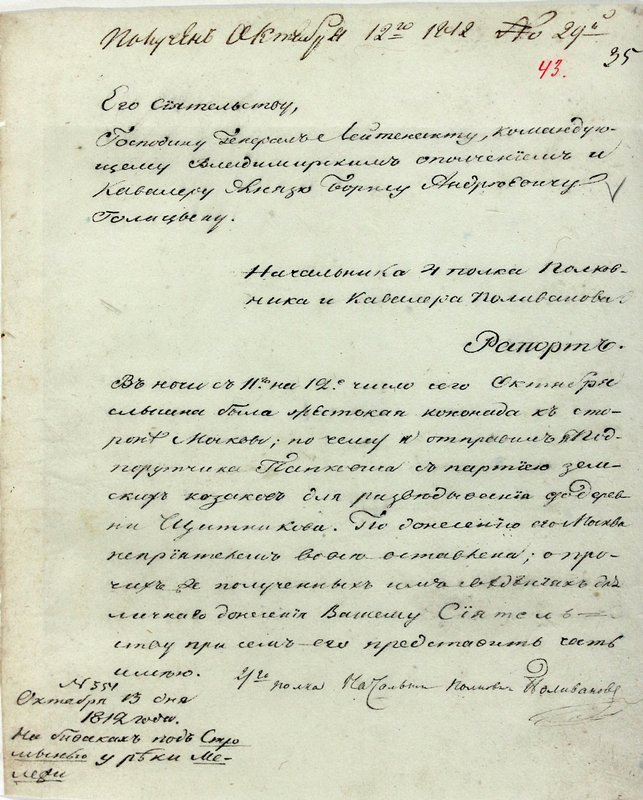 Получен Октября 12го 1812 No 29й
43.
35
Его Сіятельству,
Господину Генералъ Лейтенанту, командую-
щему Владимирскимъ ополченіемъ и
Кавалеру Князю Борису Андреевичу
Голицыну.
Начальника 4 полка Полков-
ника и Кавалера Поливанова.
Рапортъ.
Въ ночи съ 11го на 12е число сего Октября
слышна была жестокая кононада къ сто-
ронѣ Москвы; по чему я отправилъ Под-
порутчика съ партіею зем-
скихъ козаковъ для развѣдыванія до дерев-
ни Щитникова. По донесенію его Москва
непріятелемъ вовсю оставлена; о про-
чихъ же полученныхъ имъ свѣдѣніяхъ для
личнаго донесенія Вашему Сіятель-
ству при семъ его представить честь
имею.
полка Начальник Полковник Поливановъ
N 551
Октября 13 дня
1812 года.
На бивакахъ подъ Стро
мынью у рѣки Ме-
лежи